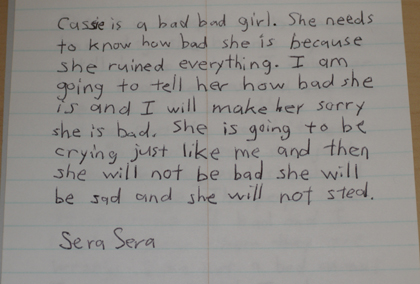 Cassie is a bad bad girl. She needs
to know how bad she is because
she ruined everything. I am
going to tell her how bad she
is and I will make her sorry
she is bad. She is going to be
crying just like me and then
she will not be bad she will
be sad and she will not steal.
Sera Sera